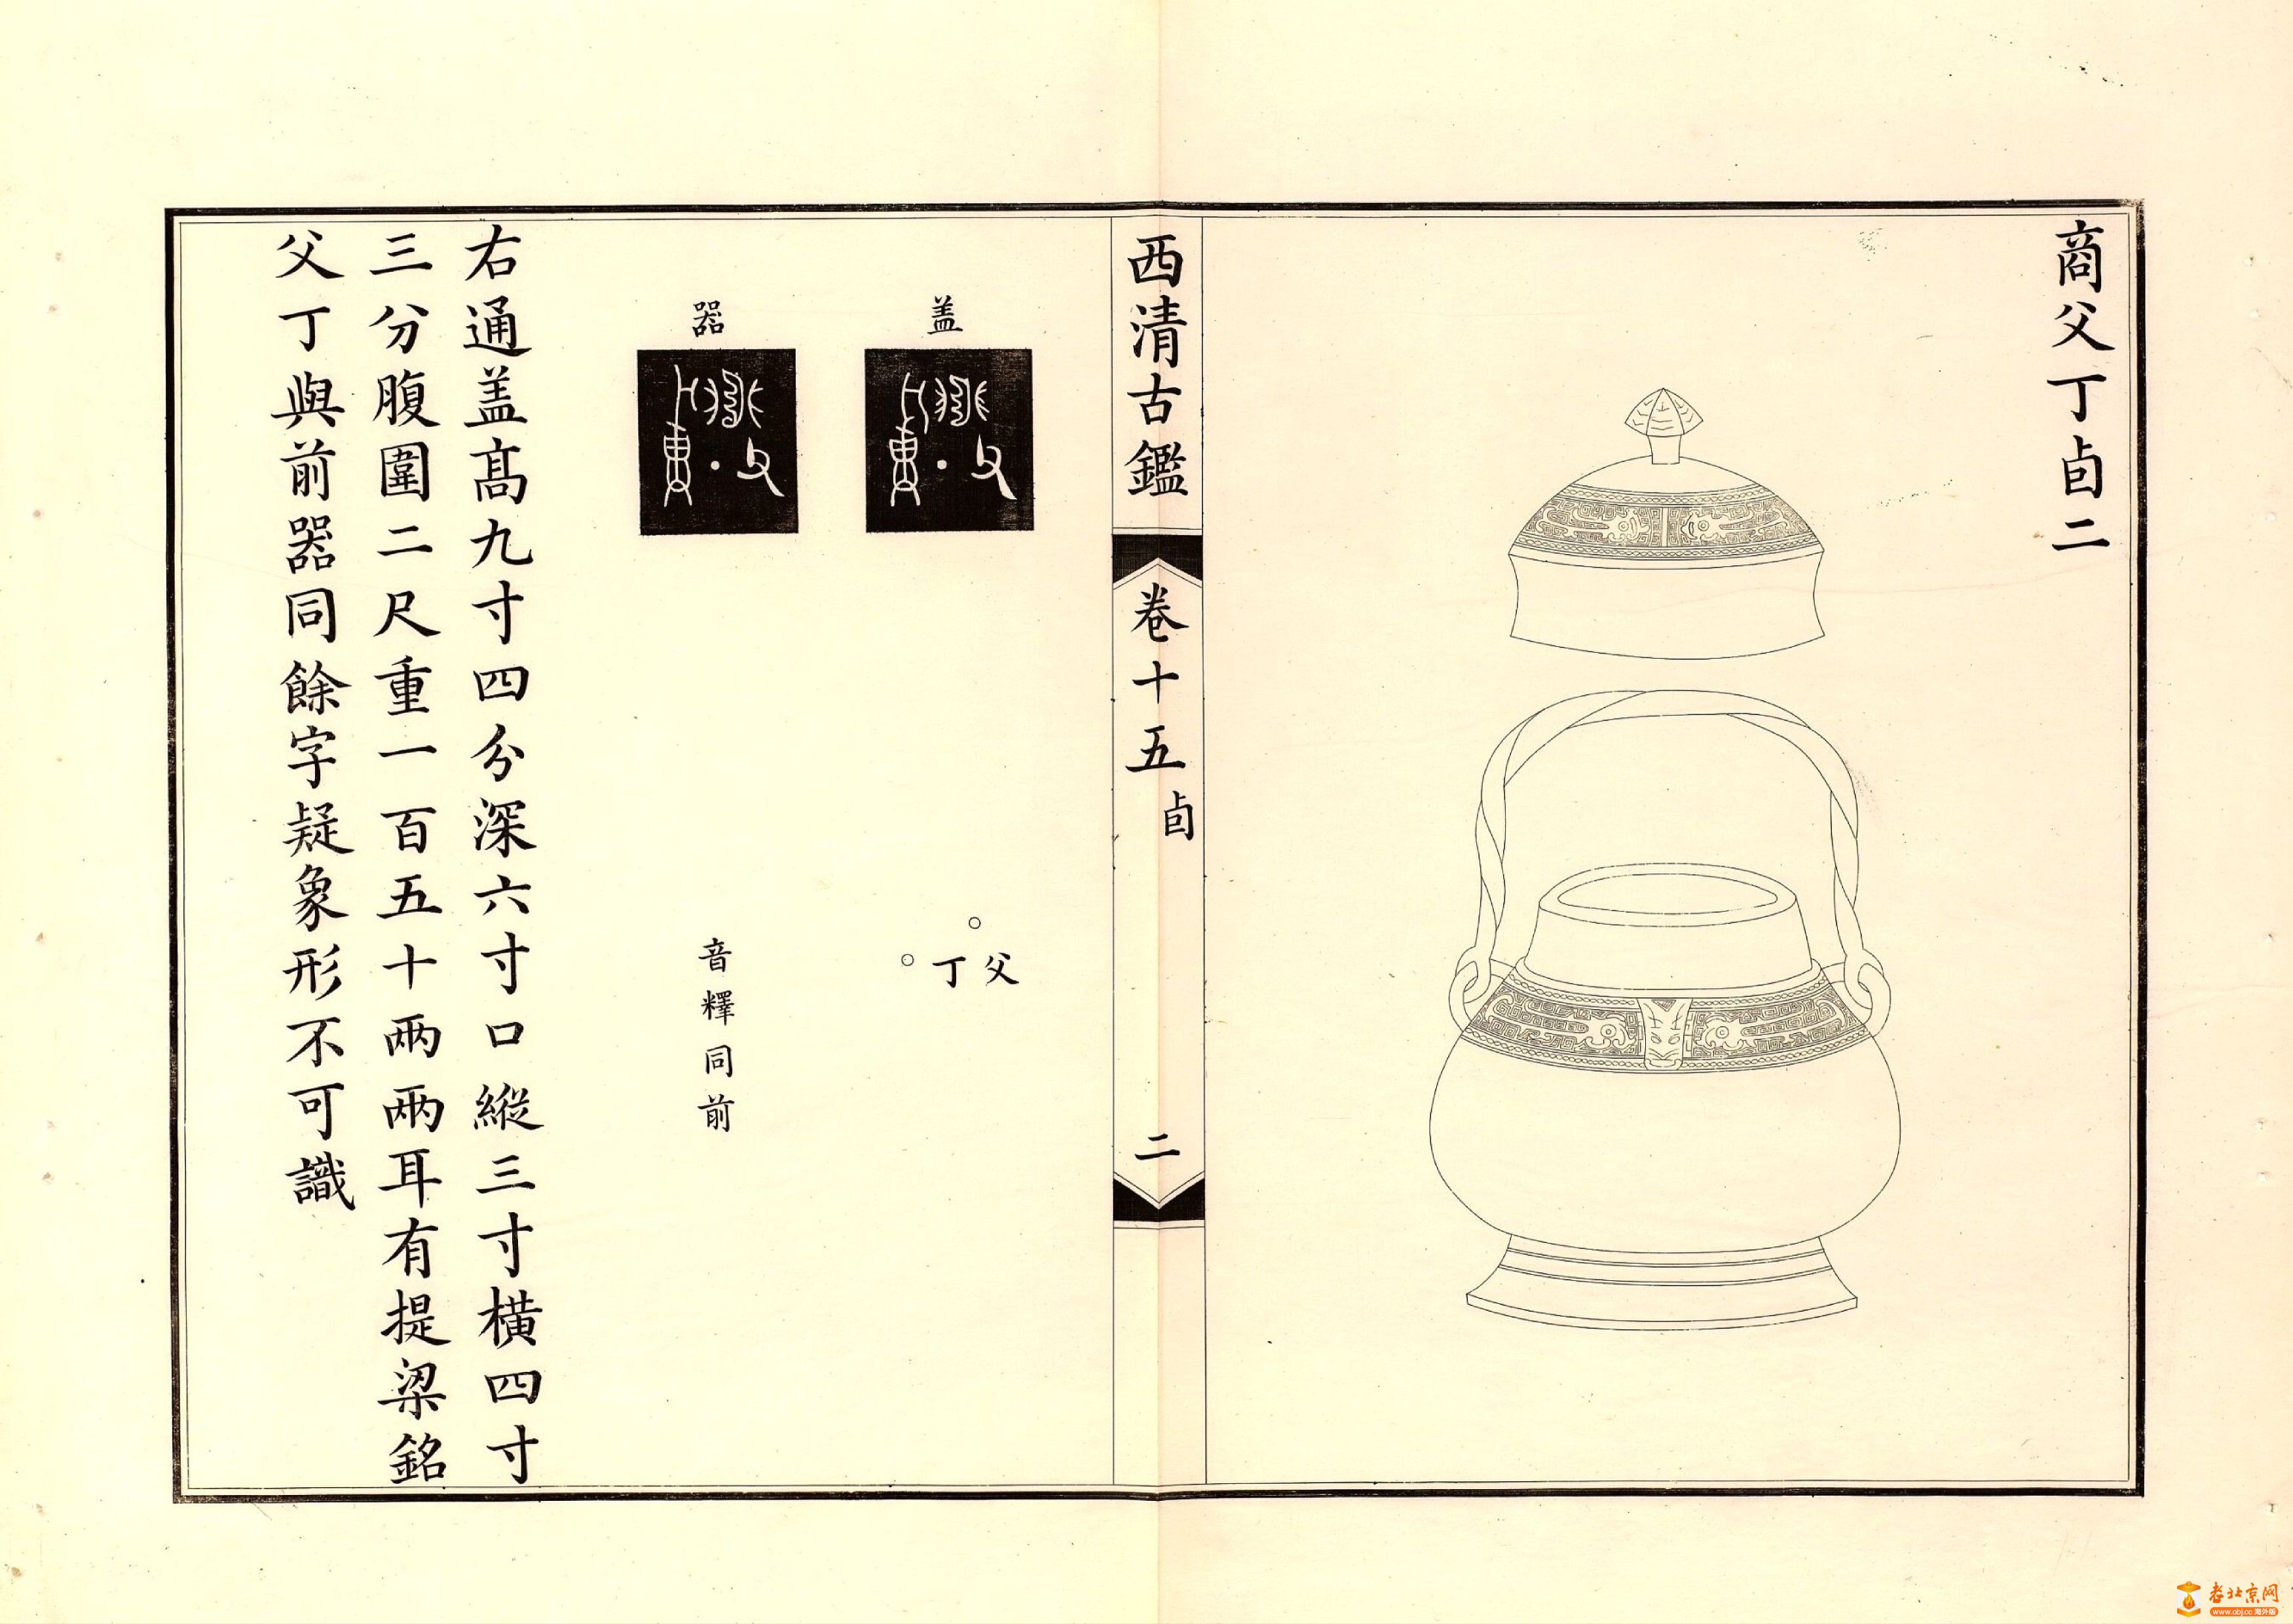 商父丁卣二
西清古鑑
卷十五
卣
二
盖
父
丁
器
音釋同前
右通盖髙九寸四分深六寸口縱三寸橫四寸
三分腹圍二尺重一百五十兩兩耳有提梁銘
父丁與前器同餘字疑象形不可識
老北京网
www.obj.cc 海外版